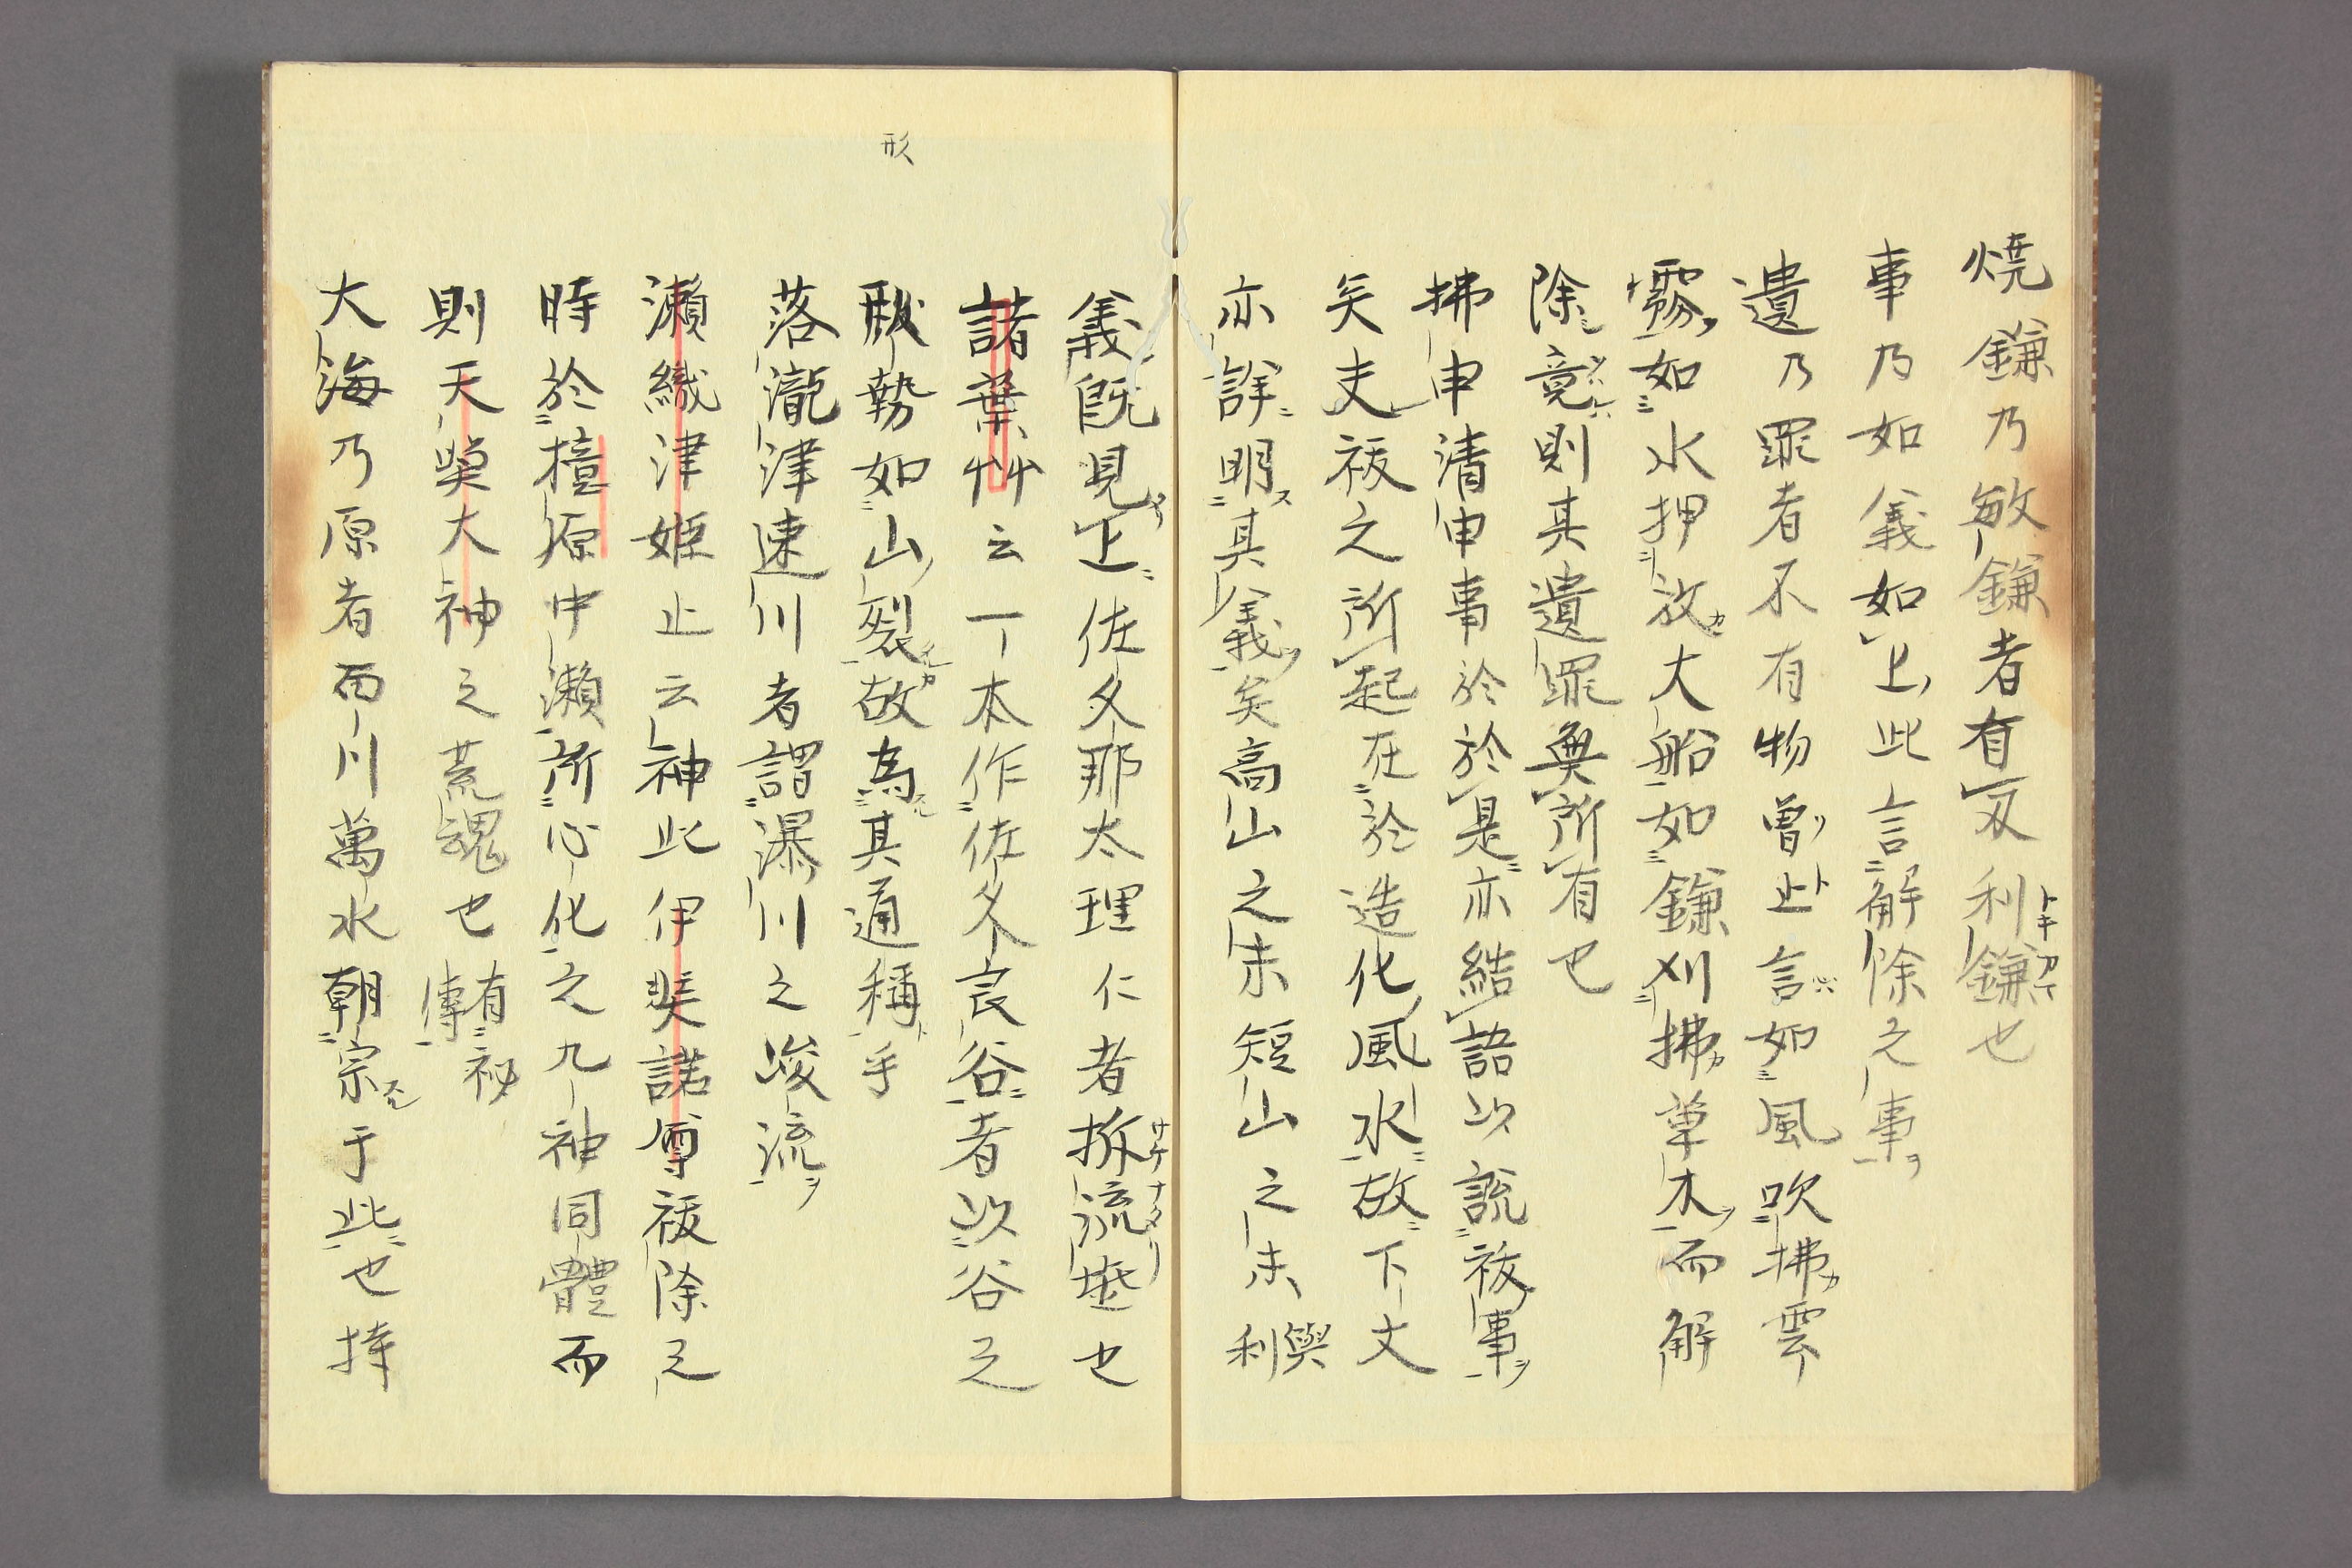 燒鎌乃敏鎌者有刄利鎌也
事乃如義如上此言解除之事
遺乃罪者不有物曾止言如風吹拂雲
霧如水押放大船如鎌刈拂草木而解
除竟則其遺罪無所有也
拂申清申事於於是亦結語以說祓事
矣夫祓之所起在於造化風水故下文
亦詳明其義矣高山之末短山之末與利
義既見上佐久那太理仁者拆流埀也
諸葉艸云一本作佐久良谷者以谷之
形
勢如山裂故為其通稱乎
落瀧津速川者謂瀑川之峻流
瀨織津姫止云神此伊奘諾尊祓除之
時於檍原中瀨所心化之九神同體而
則天㷡大神之荒魂也有秘傳
大海乃原者百川萬水朝宗于此也持